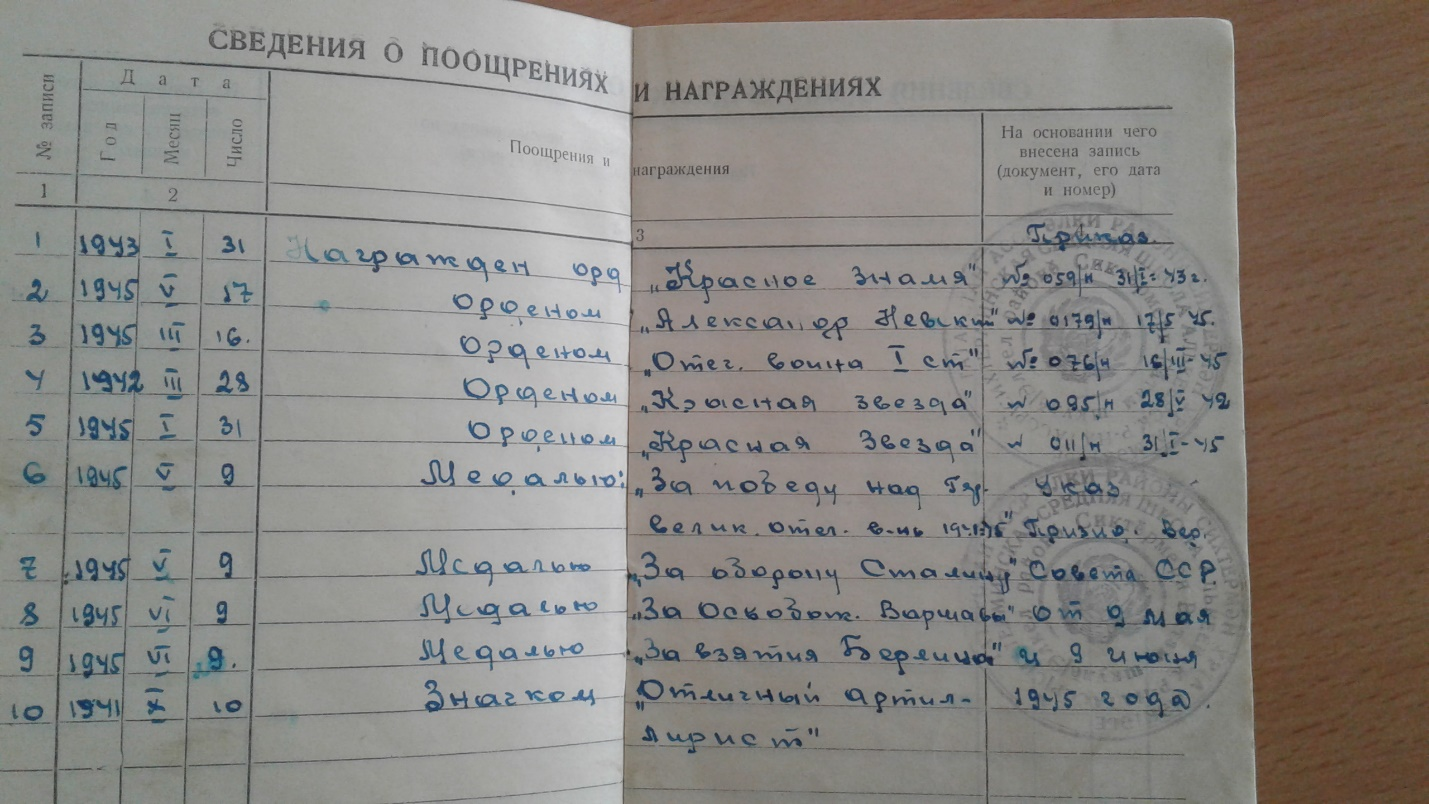 СВЕДЕНИЯ О ПООЩРЕНИЯХ И НАГРАЖДЕНИЯХ
№ записи
Дата
Год
Месяц
Число
Поощрения и награждения
На основании чего
внесена запись
(документ, его дата
и номер)
1 2 3
Приказ.
1 1943 I 31 Награжден орд „Красное Знамя" № 059/н 31/I-43 г.
2 1945 V 17 Орденом „Александр Невский" № 0179/н 17/5 45.
3 1945 III 16. Орденом „Отеч. война I ст" № 076/н 16/III-45
4 1942 III 28 Орденом „Красная звезда" № 095/н 28/V 42
5 1945 I 31 Орденом „Красная Звезда" № 011/н 31/I-45
6 1945 VI 9 Медалью: „За победу над Гер. Указ
велик. отеч. в-нь 1941-45" Призид. Вер.
7 1945 VI 9 Медалью „За оборону Сталинг" Совета ССР
8 1945 VI 9 Медалью „За Освобож. Варшавы" от 9 мая
9 1945 VI 9. Медалью „За взятия Берлина" и 9 июня
10 1941 X 10 Значком „Отличный артил- 1945 года.
лирист"